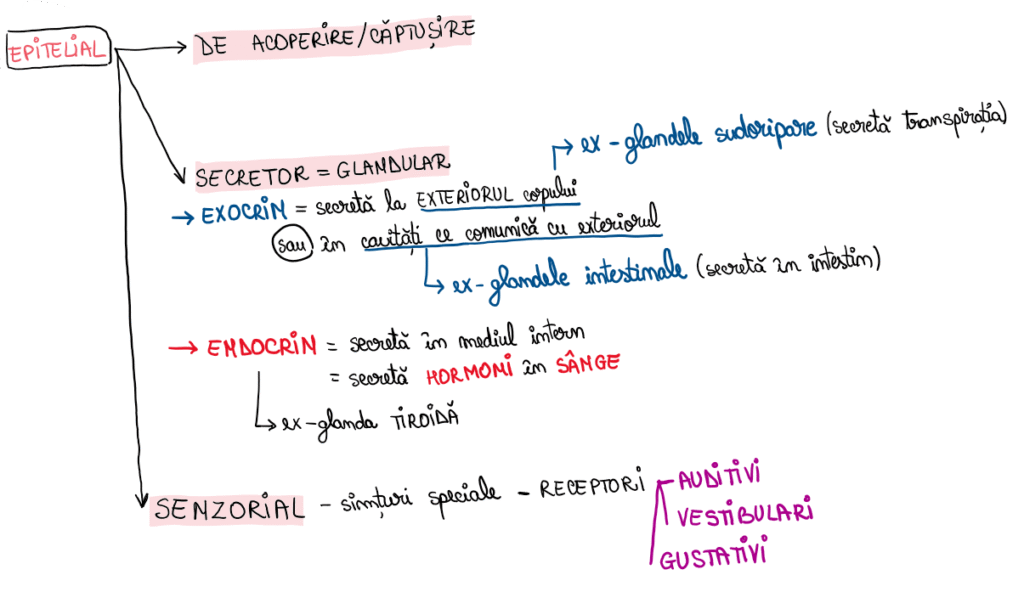 EPITELIAL
DE ACOPERIRE/CĂPTUȘIRE
SECRETOR = GLANDULAR
→ EXOCRIN = secretă la EXTERIORUL corpului
→ ex - glandele sudoripare (secretă transpirația)
sau în cavități ce comunică cu exteriorul
→ ex - glandele intestinale (secretă în intestin)
→ ENDOCRIN = secretă în mediul intern
= secretă HORMONI în SÂNGE
→ ex - glanda TIROIDĂ
SENZORIAL - simțuri speciale - RECEPTORI
AUDITIVI
VESTIBULARI
GUSTATIVI